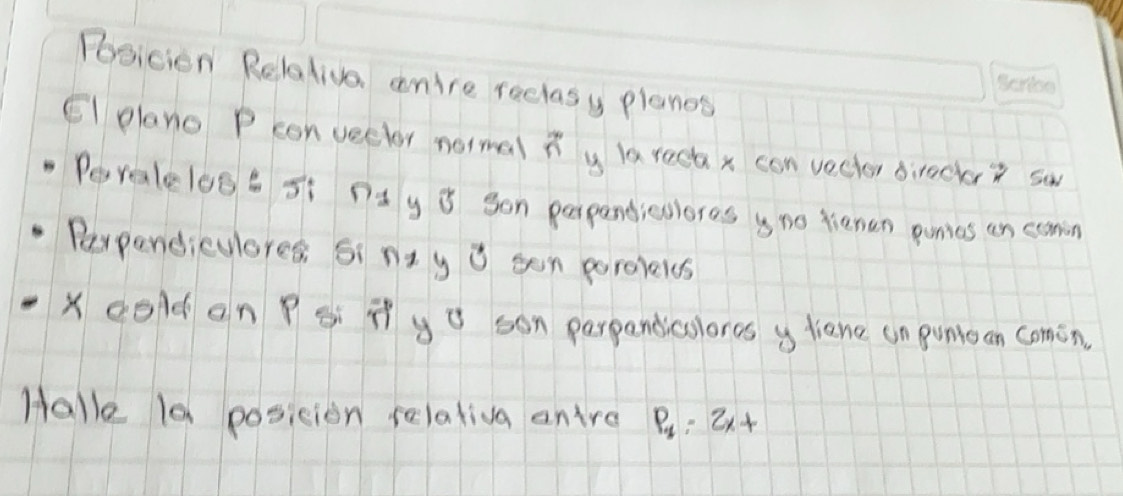 Scribe
Posición Relativa entre rectas y planos
El plano P con vector normal n⃗ y la recta x con vector director v⃗ son
• Paralelos: Si n₁ y v⃗ son perpendiculares y no tienen puntos en común
• Perpendiculares si n₁ y v⃗ son paralelos
• x está en P si n⃗ y v⃗ son perpendiculares y tiene un punto en común.
Halle la posición relativa entre P₁: 2x+